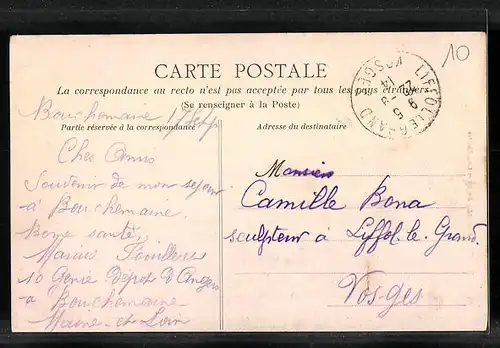 10
CARTE POSTALE
La correspondance au recto n'est pas acceptée par tous les pays étrangers
(Se renseigner à la Poste)
LIFFOL-LE-GRAND
VOSGES
Partie réservée à la correspondance
Adresse du destinataire
Bouchemaine 17 Sept
Cher Amis
Souvenir de mon sejour
à Bouchemaine.
Bonne santé,
Marius
10 Genie Dépot d'Angers
à Bouchemaine
Maine-et-Loire
Monsieur
Camille Bona
sculpteur à Liffol-le-Grand.
Vosges